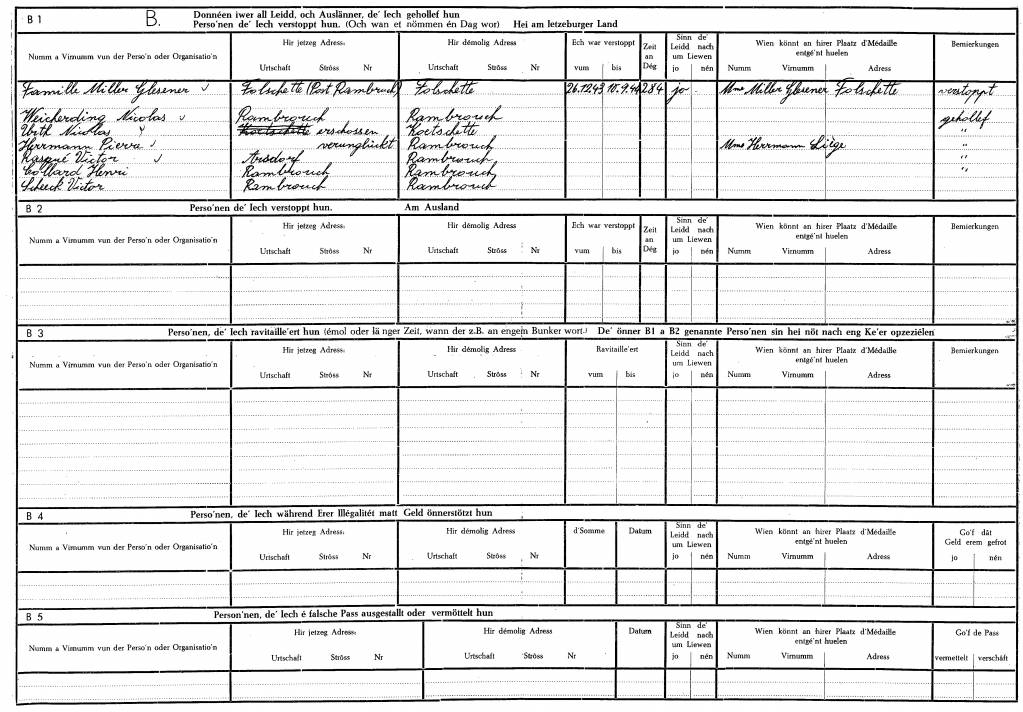 B 1 B. Donnéen iwer all Leidd, och Auslänner, de' Iech gehollef hun
Perso'nen de' Iech verstoppt hun. (Och wan et nömmen én Dag wor) Hei am letzeburger Land
Numm a Virnumm vun der Perso'n oder Organisatio'n
Hir jetzeg Adress:
Urtschaft Ströss Nr
Hir démolig Adress
Urtschaft Ströss Nr
Ech war verstoppt
vum bis
Zeit
an
Dég
Sinn de'
Leidd nach
um Liewen
jo nén
Wien könnt an hirer Plaatz d'Médaille
entgé'nt huelen
Numm Virnumm Adress
Bemierkungen
Famille Miller Glesener √ Folschette (Post Rambruch) Folschette 26.12.43 10.9.44 284 jo . Mme Miller Glesener Folschette verstoppt
Weicherding Nicolas √ Rambrouch Rambrouch gehollef
Nicolas √ Koetschette erschossen Koetschette "
Herrmann Pierre √ verunglückt Rambrouch Mme Herrmann Liège "
Kaspué Victor √ Arsdorf Rambrouch "
Collard Henri Rambrouch Rambrouch "
Scheeck Victor Rambrouch Rambrouch
B 2 Perso'nen de' Iech verstoppt hun. Am Ausland
Numm a Virnumm vun der Perso'n oder Organisatio'n
Hir jetzeg Adress:
Urtschaft Ströss Nr
Hir démolig Adress
Urtschaft Ströss Nr
Ech war verstoppt
vum bis
Zeit
an
Dég
Sinn de'
Leidd nach
um Liewen
jo nén
Wien könnt an hirer Plaatz d'Médaille
entgé'nt huelen
Numm Virnumm Adress
Bemierkungen
B 3 Perso'nen, de' Iech ravitaille'ert hun (émol oder länger Zeit, wann der z.B. an engem Bunker wort.) De' önner B1 a B2 genannte Perso'nen sin hei nöt nach eng Ke'er opzezielen
Numm a Virnumm vun der Perso'n oder Organisatio'n
Hir jetzeg Adress:
Urtschaft Ströss Nr
Hir démolig Adress
Urtschaft Ströss Nr
Ravitaille'ert
vum bis
Sinn de'
Leidd nach
um Liewen
jo nén
Wien könnt an hirer Plaatz d'Médaille
entgé'nt huelen
Numm Virnumm Adress
Bemierkungen
B 4 Perso'nen, de' Iech während Erer Illégalitét matt Geld önnerstötzt hun
Numm a Virnumm vun der Perso'n oder Organisatio'n
Hir jetzeg Adress:
Urtschaft Ströss Nr
Hir démolig Adress
Urtschaft Ströss Nr
d'Somme
Datum
Sinn de'
Leidd nach
um Liewen
jo nén
Wien könnt an hirer Plaatz d'Médaille
entgé'nt huelen
Numm Virnumm Adress
Go'f dât
Geld erem gefrot
jo nén
B 5 Person'nen, de' Iech é falsche Pass ausgestallt oder vermöttelt hun
Numm a Virnumm vun der Perso'n oder Organisatio'n
Hir jetzeg Adress:
Urtschaft Ströss Nr
Hir démolig Adress
Urtschaft Ströss Nr
Datum
Sinn de'
Leidd nach
um Liewen
jo nén
Wien könnt an hirer Plaatz d'Médaille
entgé'nt huelen
Numm Virnumm Adress
Go'f de Pass
vermettelt verschâft